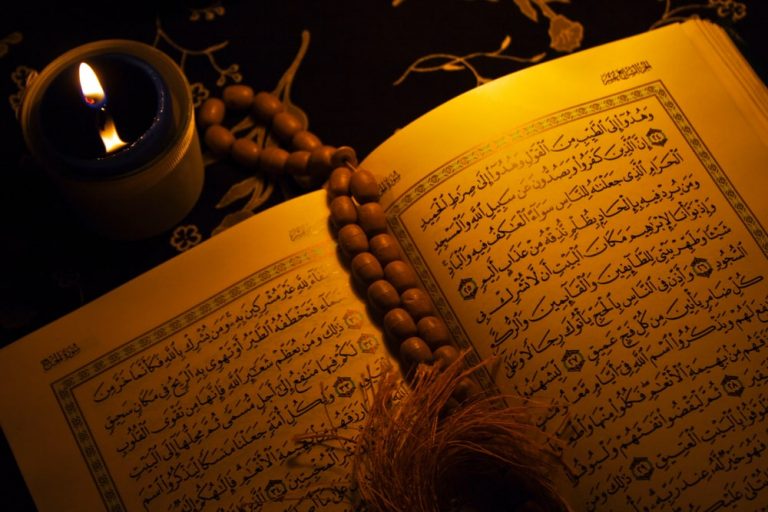 الجزء السابع عشر
وَهُدُوٓا۟ إِلَى ٱلطَّيِّبِ مِنَ ٱلْقَوْلِ وَهُدُوٓا۟ إِلَىٰ صِرَٰطِ ٱلْحَمِيدِ ٢٤
إِنَّ ٱلَّذِينَ كَفَرُوا۟ وَيَصُدُّونَ عَن سَبِيلِ ٱللَّهِ وَٱلْمَسْجِدِ
ٱلْحَرَامِ ٱلَّذِى جَعَلْنَٰهُ لِلنَّاسِ سَوَآءً ٱلْعَٰكِفُ فِيهِ وَٱلْبَادِ
وَمَن يُرِدْ فِيهِ بِإِلْحَادٍۭ بِظُلْمٍ نُّذِقْهُ مِنْ عَذَابٍ أَلِيمٍ ٢٥
وَإِذْ بَوَّأْنَا لِإِبْرَٰهِيمَ مَكَانَ ٱلْبَيْتِ أَن لَّا تُشْرِكْ بِى
شَيْـًٔا وَطَهِّرْ بَيْتِىَ لِلطَّآئِفِينَ وَٱلْقَآئِمِينَ وَٱلرُّكَّعِ
ٱلسُّجُودِ ٢٦ وَأَذِّن فِى ٱلنَّاسِ بِٱلْحَجِّ يَأْتُوكَ رِجَالًا وَعَلَىٰ
كُلِّ ضَامِرٍ يَأْتِينَ مِن كُلِّ فَجٍّ عَمِيقٍ ٢٧ لِّيَشْهَدُوا۟
لَهُمْ وَيَذْكُرُوا۟ ٱسْمَ ٱللَّهِ فِىٓ أَيَّامٍ
مِّنۢ بَهِيمَةِ ٱلْأَنْعَٰمِ فَكُلُوا۟ مِنْهَا
٢٨ ثُمَّ لْيَقْضُوا۟ تَفَثَهُمْ وَلْيُوفُوا۟
بِٱلْبَيْتِ ٱلْعَتِيقِ ٢٩ ذَٰلِكَ وَمَن
خَيْرٌ لَّهُۥ عِندَ رَبِّهِۦ
سورة الحج
لِلَّهِ غَيْرَ مُشْرِكِينَ بِهِۦ وَمَن يُشْرِكْ بِٱللَّهِ فَكَأَنَّمَا خَرَّ مِنَ
ٱلسَّمَآءِ فَتَخْطَفُهُ ٱلطَّيْرُ أَوْ تَهْوِى بِهِ ٱلرِّيحُ فِى مَكَانٍ سَحِيقٍ
٣١ ذَٰلِكَ وَمَن يُعَظِّمْ شَعَٰٓئِرَ ٱللَّهِ فَإِنَّهَا مِن تَقْوَى ٱلْقُلُوبِ
٣٢ لَكُمْ فِيهَا مَنَٰفِعُ إِلَىٰٓ أَجَلٍ مُّسَمًّى ثُمَّ مَحِلُّهَآ إِلَى ٱلْبَيْتِ
٣٣ وَلِكُلِّ أُمَّةٍ جَعَلْنَا مَنسَكًا لِّيَذْكُرُوا۟ ٱسْمَ